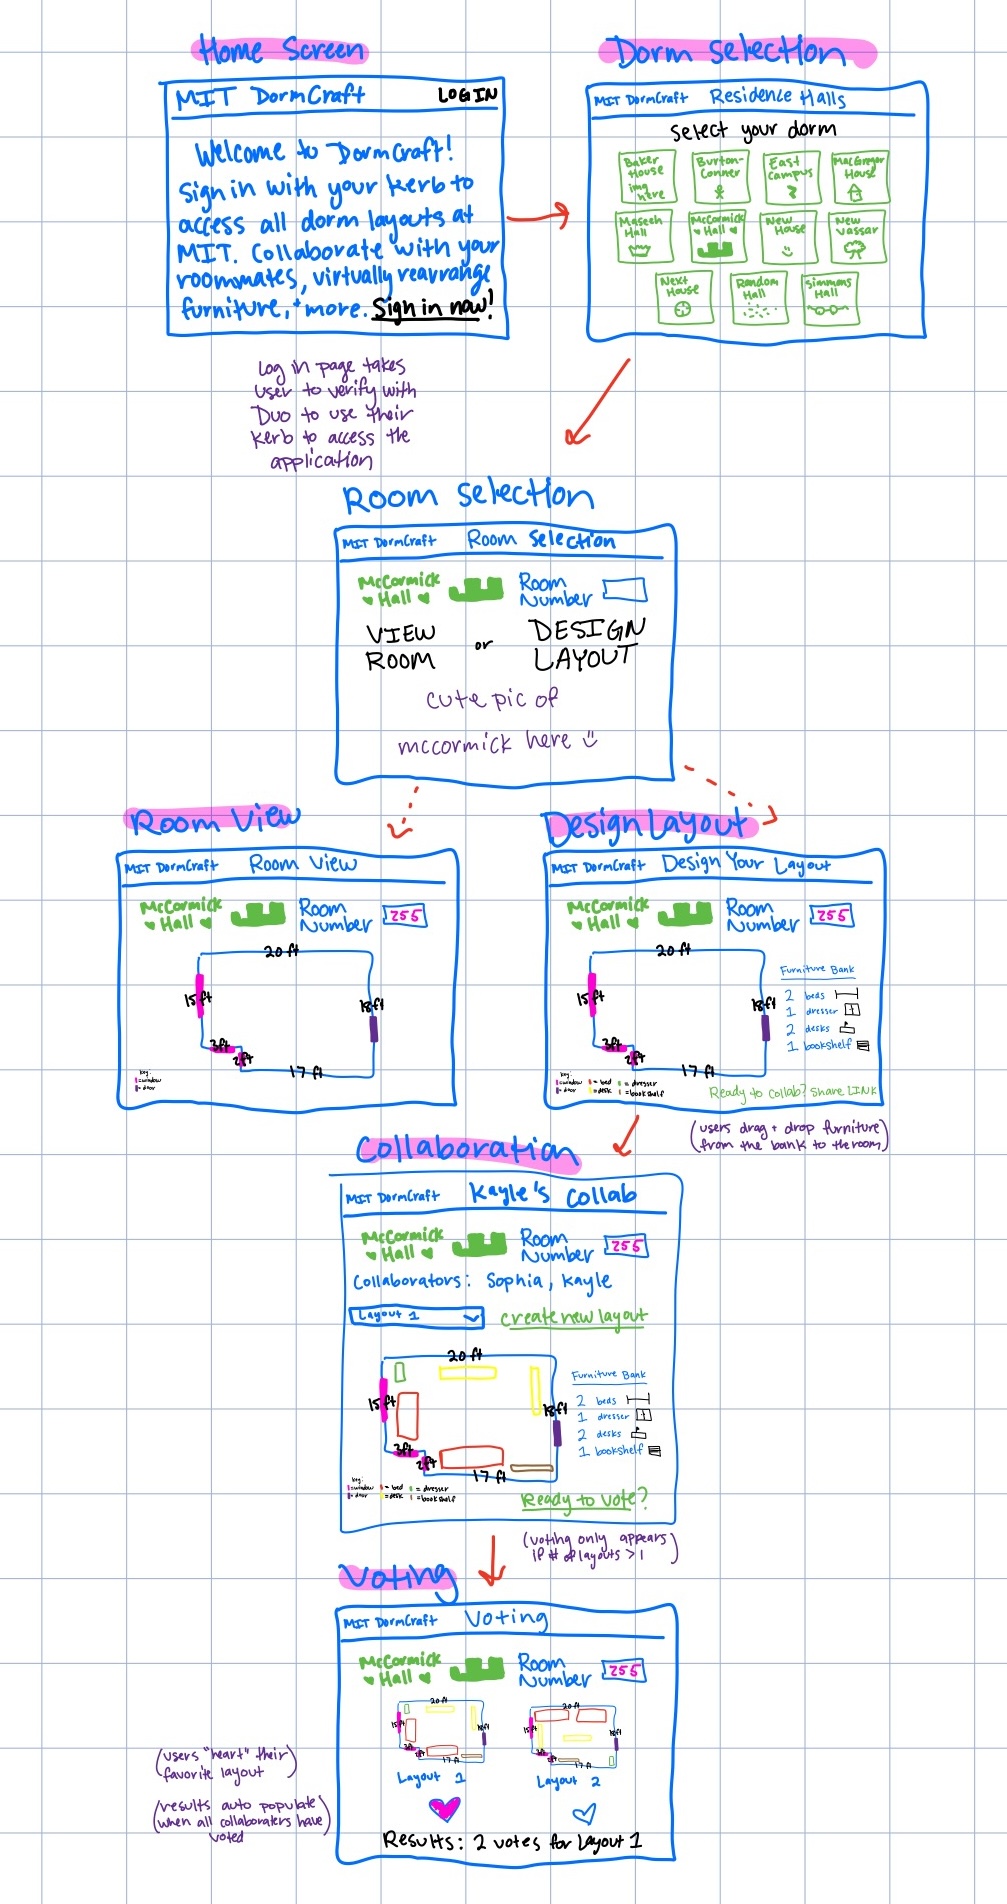 Home Screen
MIT DormCraft LOGIN
Welcome to DormCraft!
Sign in with your kerb to
access all dorm layouts at
MIT. Collaborate with your
roommates, virtually rearrange
furniture, + more. Sign in now!
Log in page takes
user to verify with
Duo to use their
kerb to access the
application
Dorm Selection
MIT DormCraft Residence Halls
Select your dorm
Baker House img here
Burton-Conner
East Campus
MacGregor House
Maseeh Hall
McCormick Hall
New House
New Vassar
Next House
Random Hall
Simmons Hall
Room Selection
MIT DormCraft Room Selection
McCormick Hall
Room Number
VIEW ROOM or DESIGN LAYOUT
cute pic of
mccormick here
Room View
MIT DormCraft Room View
McCormick Hall
Room Number 255
20 ft
15 ft
18 ft
3ft
2ft
17 ft
key:
=window
=door
Design Layout
MIT DormCraft Design Your Layout
McCormick Hall
Room Number 255
20 ft
15 ft
18 ft
3ft
2ft
17 ft
Furniture Bank
2 beds
1 dresser
2 desks
1 bookshelf
key:
=window = bed = dresser
=door =desk =bookshelf
Ready to collab? share LINK
(users drag + drop furniture
from the bank to the room)
Collaboration
MIT DormCraft Kayle's Collab
McCormick Hall
Room Number 255
Collaborators: Sophia, Kayle
Layout 1
create new layout
20 ft
15 ft
18 ft
3ft
2ft
17 ft
Furniture Bank
2 beds
1 dresser
2 desks
1 bookshelf
key:
=window = bed = dresser
=door =desk =bookshelf
Ready to vote?
(voting only appears
if # of layouts > 1)
Voting
MIT DormCraft Voting
McCormick Hall
Room Number 255
20 ft
15 ft
18 ft
3ft
2ft
17 ft
20 ft
15 ft
18 ft
3ft
2ft
17 ft
Layout 1
Layout 2
(users "heart" their
favorite layout)
(results auto populate
when all collaboraters have
voted)
Results: 2 votes for Layout 1